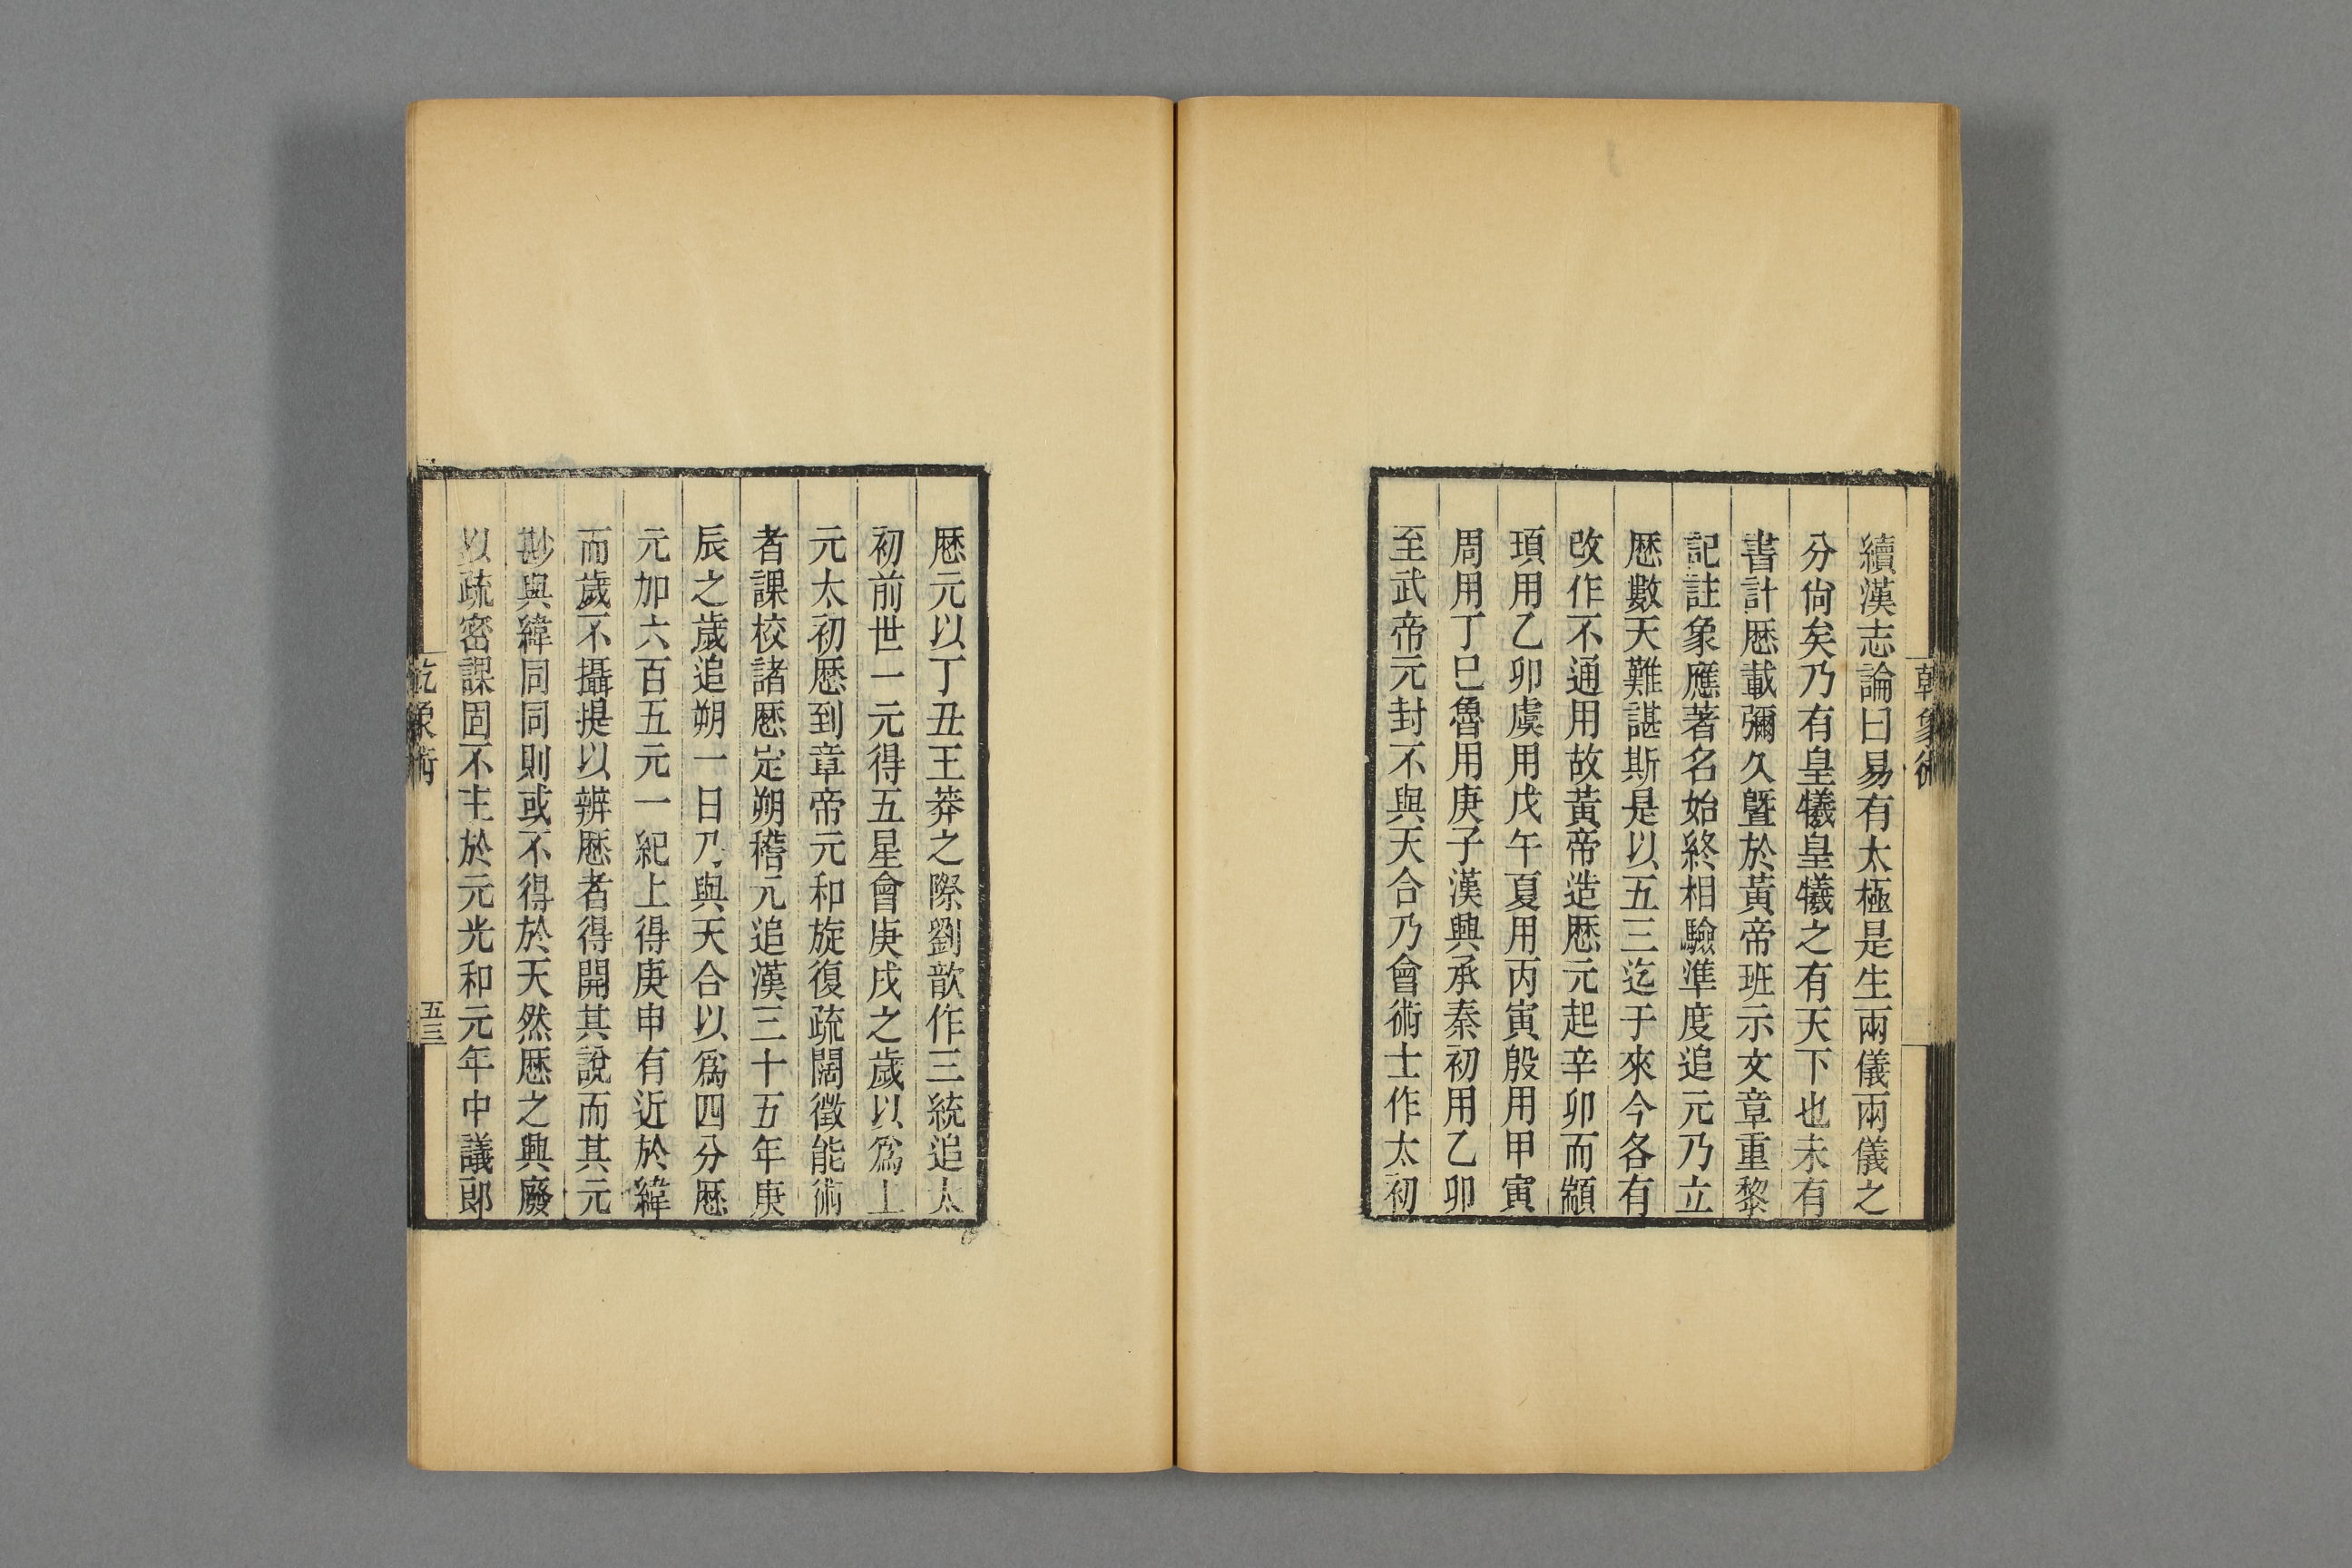 續漢志論曰易有太極是生兩儀兩儀之
分尙矣乃有皇犧皇犧之有天下也未有
書計厯載彌久曁於黃帝班示文章重黎
記註象應著名始終相驗準度追元乃立
厯數天難諶斯是以五三迄于來今各有
改作不通用故黃帝造厯元起辛卯而顓
頊用乙卯虞用戊午夏用丙寅殷用甲寅
周用丁巳魯用庚子漢興承秦初用乙卯
至武帝元封不與天合乃會術士作太初
厯元以丁丑王莽之際劉歆作三統追太
初前世一元得五星會庚戌之歲以爲上
元太初厯到章帝元和旋復疏闊徵能術
者課校諸厯定朔稽元追漢三十五年庚
辰之歲追朔一日乃與天合以爲四分厯
元加六百五元一紀上得庚申有近於緯
而歲不攝提以辨厯者得開其說而其元
尟與緯同同則或不得於天然厯之興廢
以疏密課固不主於元光和元年中議郎
乾象術
五三